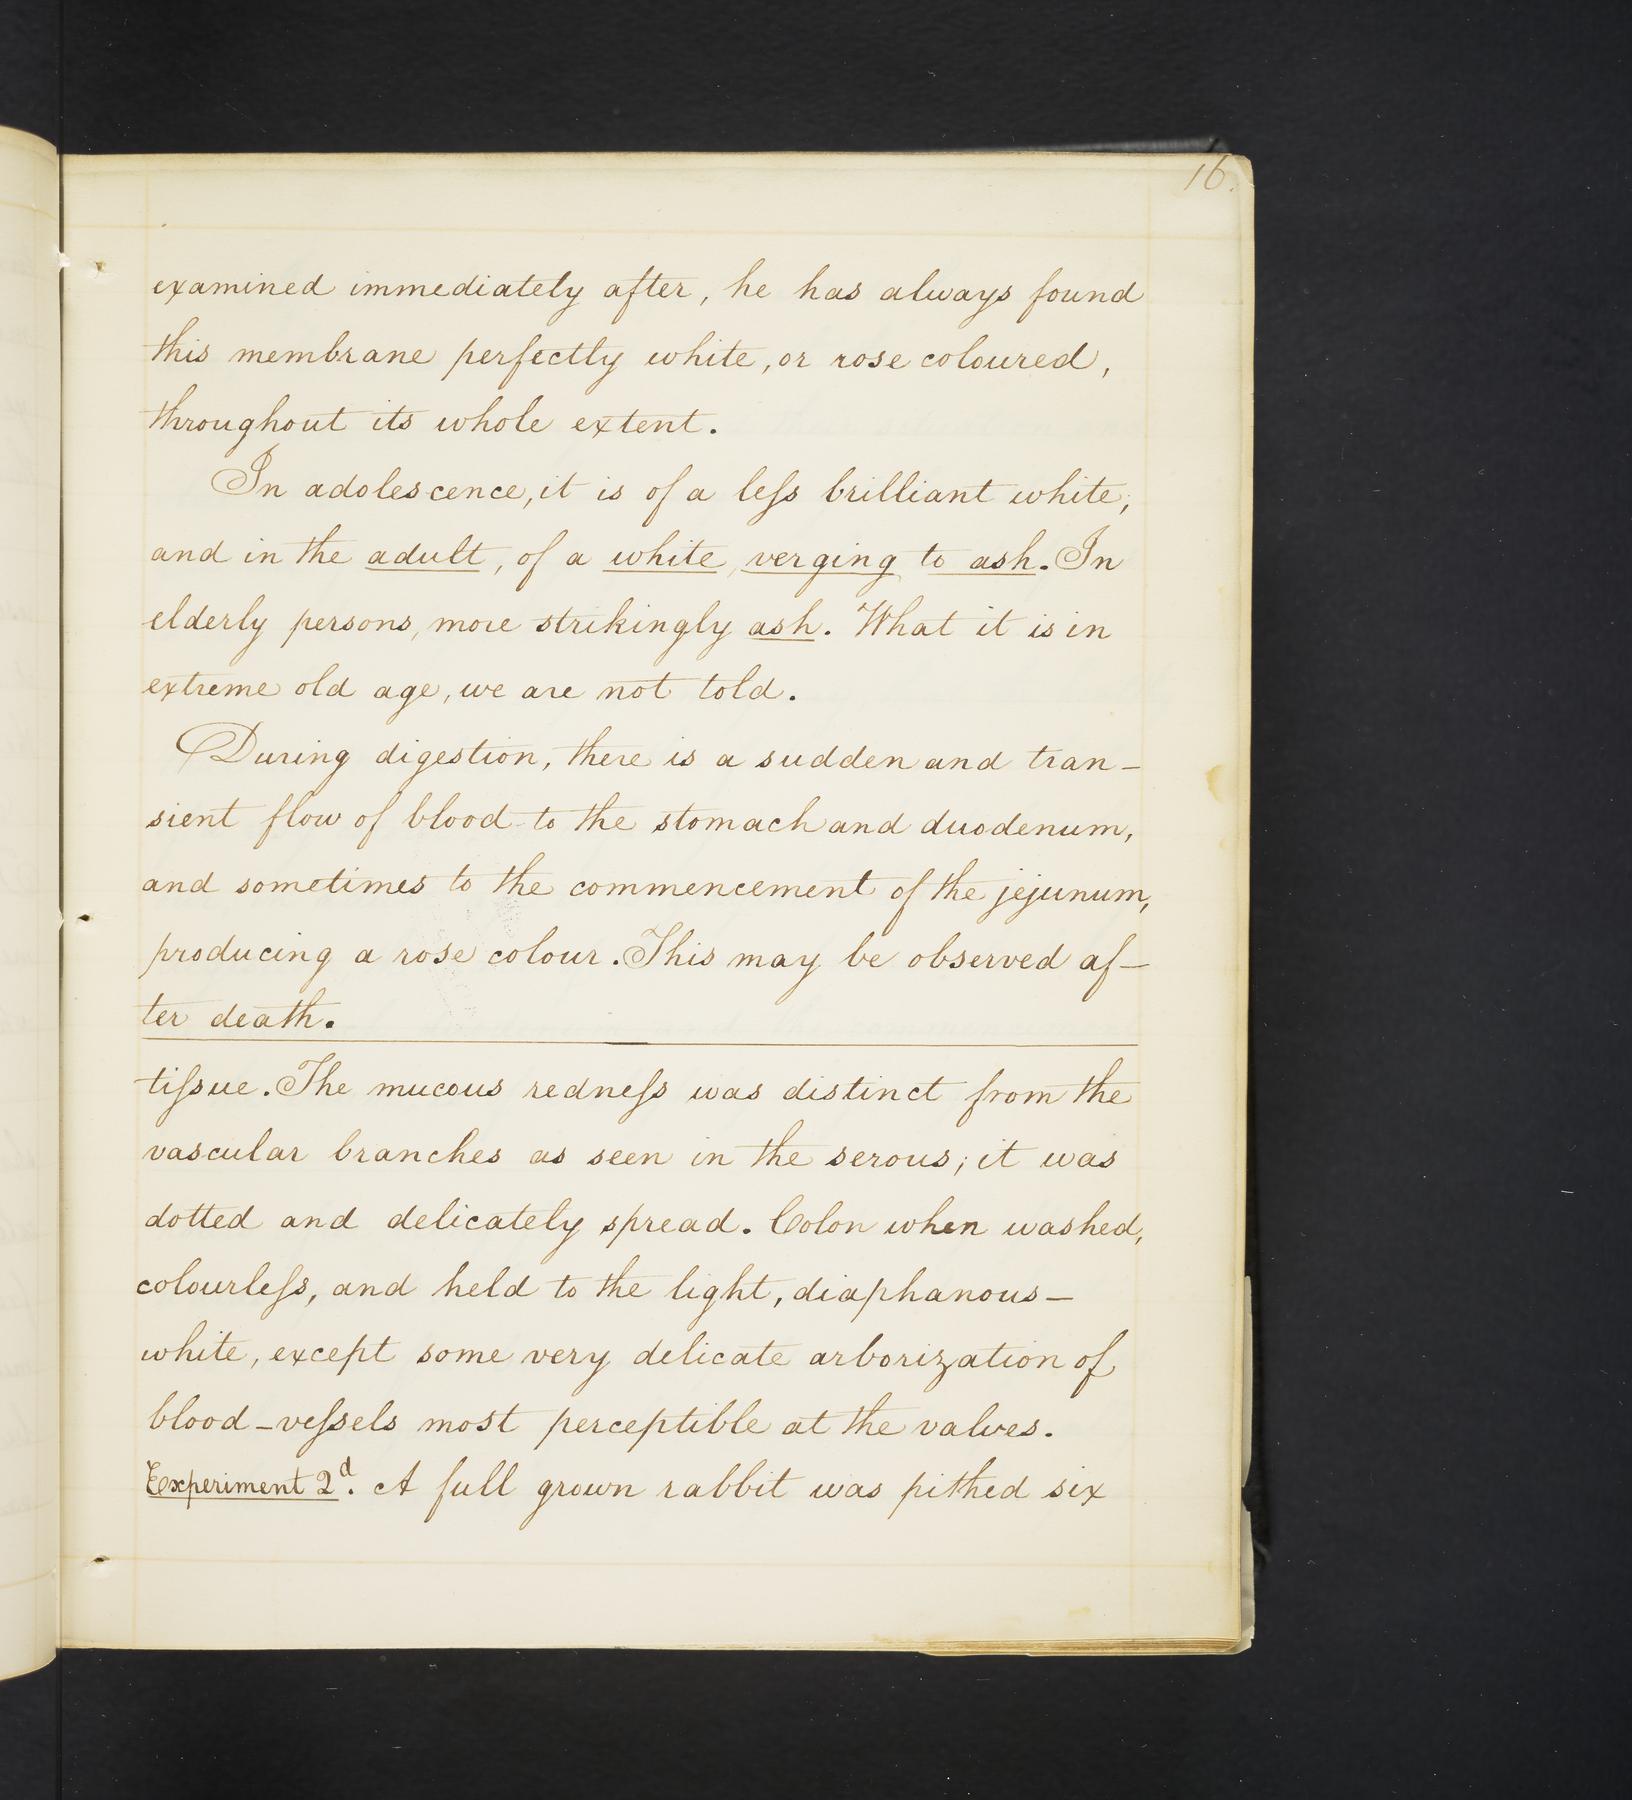 16.
examined immediately after, he has always found
this membrane perfectly white, or rose coloured,
throughout its whole extent.
In adolescence, it is of a leſs brilliant white;
and in the adult, of a white, verging to ash. In
elderly persons, more strikingly ash. What it is in
extreme old age, we are not told.
During digestion, there is a sudden and tran-
sient flow of blood to the stomach and duodenum,
and sometimes to the commencement of the jejunum,
producing a rose colour. This may be observed af-
ter death.
tiſsue. The mucous redneſs was distinct from the
vascular branches as seen in the serous; it was
dotted and delicately spread. Colon when washed,
colourleſs, and held to the light, diaphanous-
white, except some very delicate arborization of
blood-veſsels most perceptible at the valves.
Experiment 2d. A full grown rabbit was pithed six